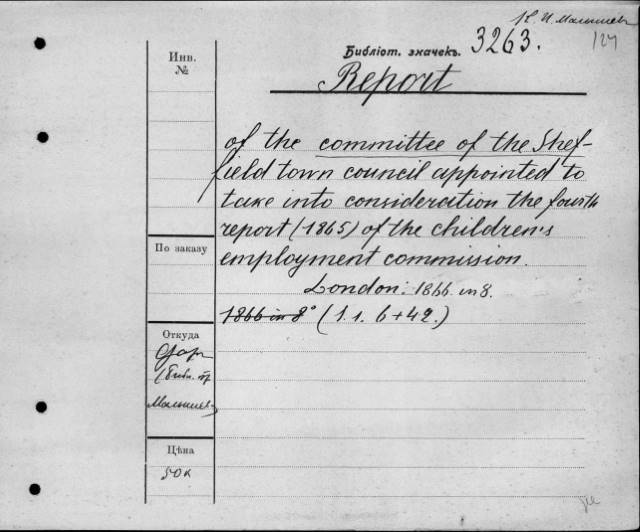 К. И. Малышев
127
Библіот. значекъ. 3263.
Инв.
№
Report
of the committee of the Shef-
field town council appointed to
take into consideration the fourth
report (1865) of the children's
employment commission.
London: 1866. in 8.
1866 in 8° (1. 1. 6+42.)
По заказу
Откуда
Даръ
Малышев
Цѣна
50к